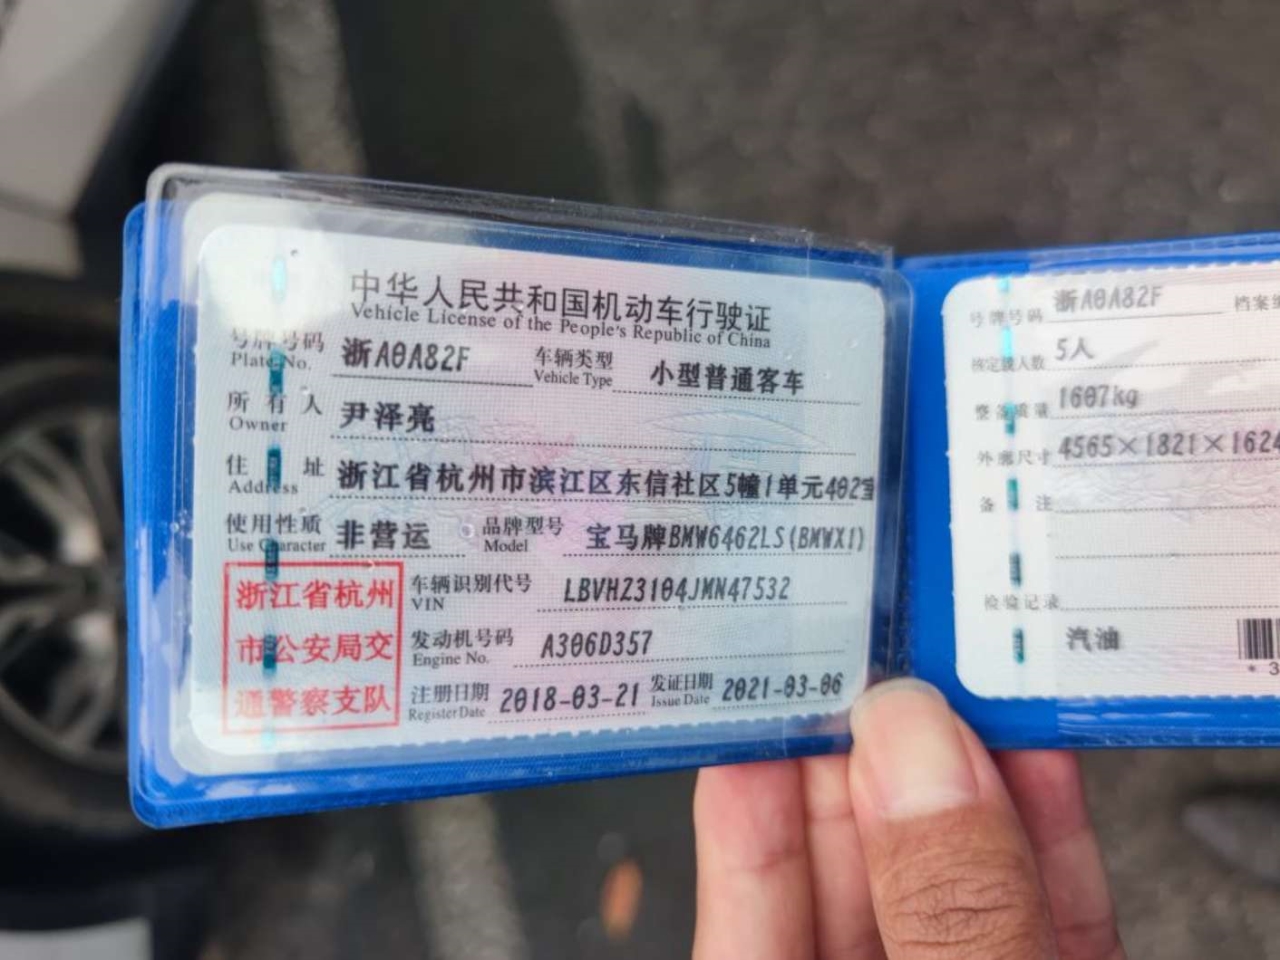 中华人民共和国机动车行驶证
Vehicle License of the People's Republic of China
号牌号码 浙A0A82F 车辆类型 小型普通客车
Plate No. Vehicle Type
所有人 尹泽亮
Owner
住址 浙江省杭州市滨江区东信社区5幢1单元402室
Address
使用性质 非营运 品牌型号 宝马牌BMW6462LS(BMWX1)
Use Character Model
浙江省杭州
市公安局交
通警察支队
车辆识别代号 LBVHZ3104JMN47532
VIN
发动机号码 A306D357
Engine No.
注册日期 2018-03-21 发证日期 2021-03-06
Register Date Issue Date
号牌号码 浙A0A82F 档案编
核定载人数 5人
整备质量 1607kg
外廓尺寸 4565×1821×1624
备注
检验记录
汽油
*3